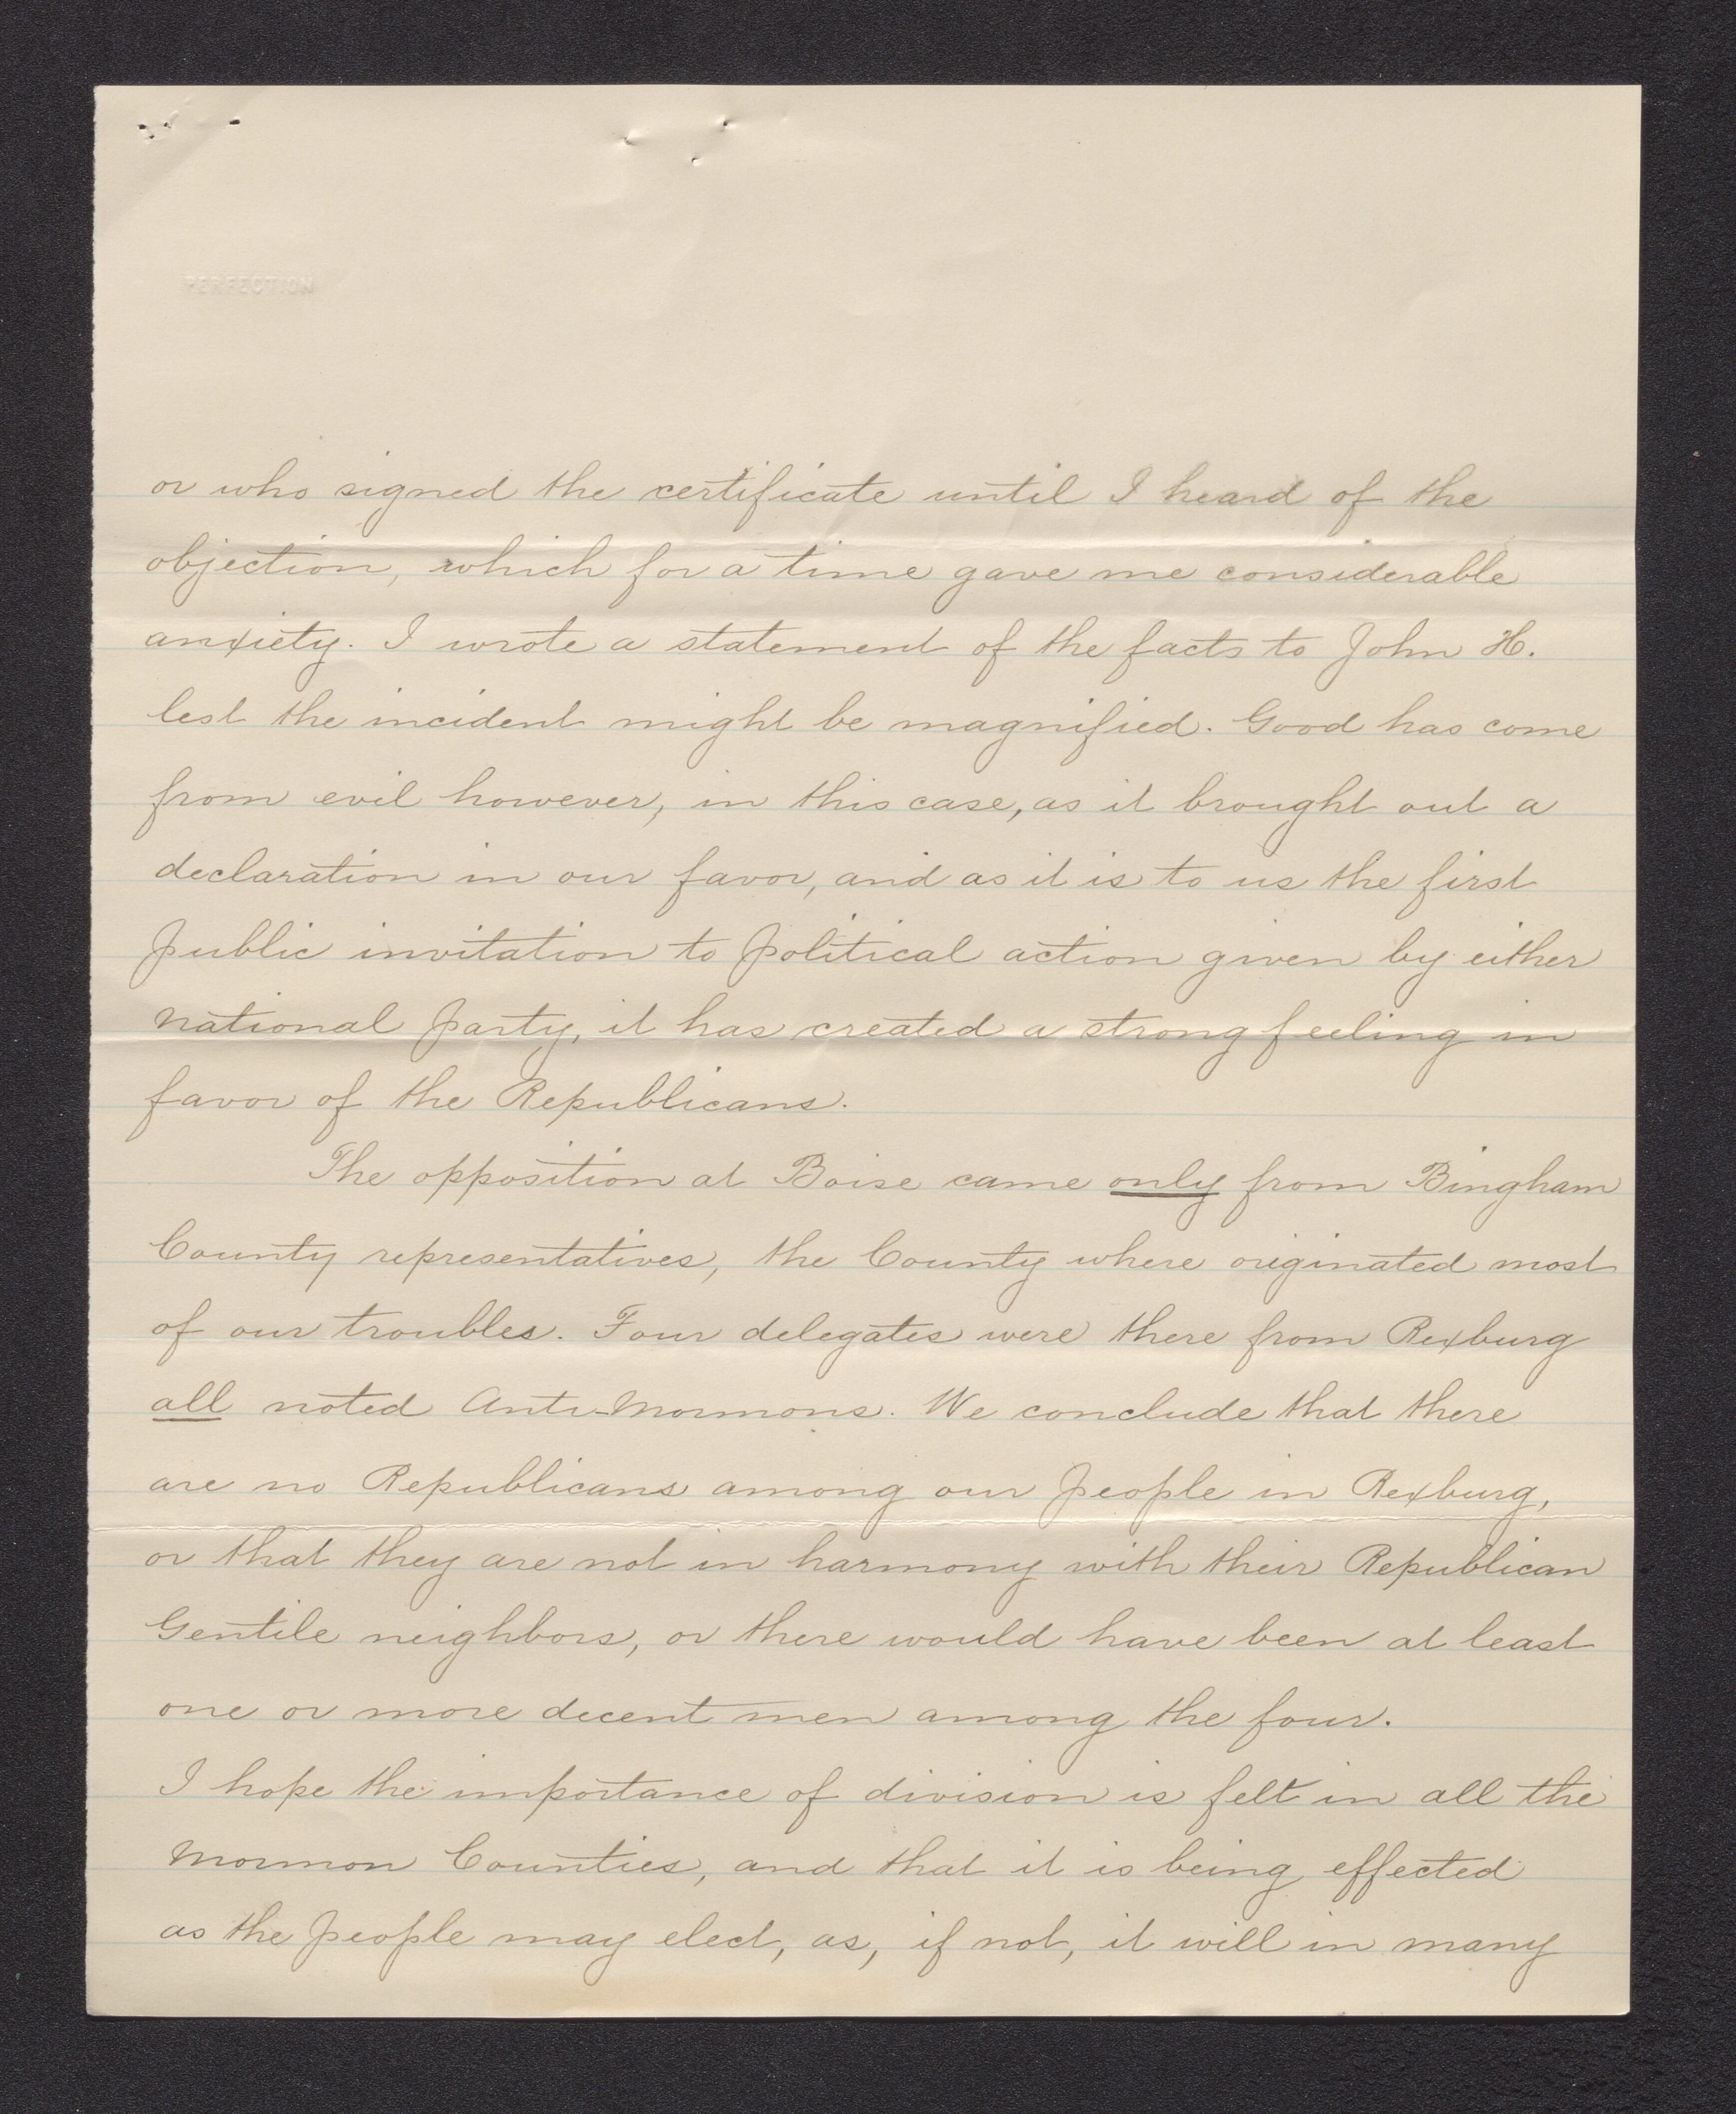 PERFECTION
or who signed the certificate until I heard of the
objection, which for a time gave me considerable
anxiety. I wrote a statement of the facts to John H.
lest the incident might be magnified. Good has come
from evil however, in this case, as it brought out a
declaration in our favor, and as it is to us the first
public invitation to political action given by either
National party, it has created a strong feeling in
favor of the Republicans.
The opposition at Boise came only from Bingham
County representatives, the County where originated most
of our troubles. Four delegates were there from Rexburg
all noted Anti-Mormons. We conclude that there
are no Republicans among our people in Rexburg,
or that they are not in harmony with their Republican
Gentile neighbors, or there would have been at least
one or more decent men among the four.
I hope the importance of division is felt in all the
Mormon Counties, and that it is being effected
as the people may elect, as, if not, it will in many